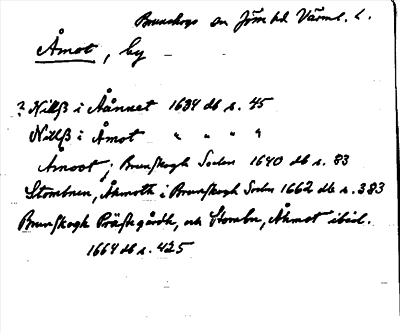 Brunskogs sn Jösse hd Värml. l.
Åmot, by
? Nillß i Åånnet 1634 db s. 45
Nillß i Åmot " " " "
Amoot, Brunskogh Sochn 1640 db s. 83
Stombnen, Åhmoth i Brunskogh Sochn 1662 db s. 383
Brunskogh Präste gårdh, och Stombn, Åhmot ibid.
1664 db s. 425